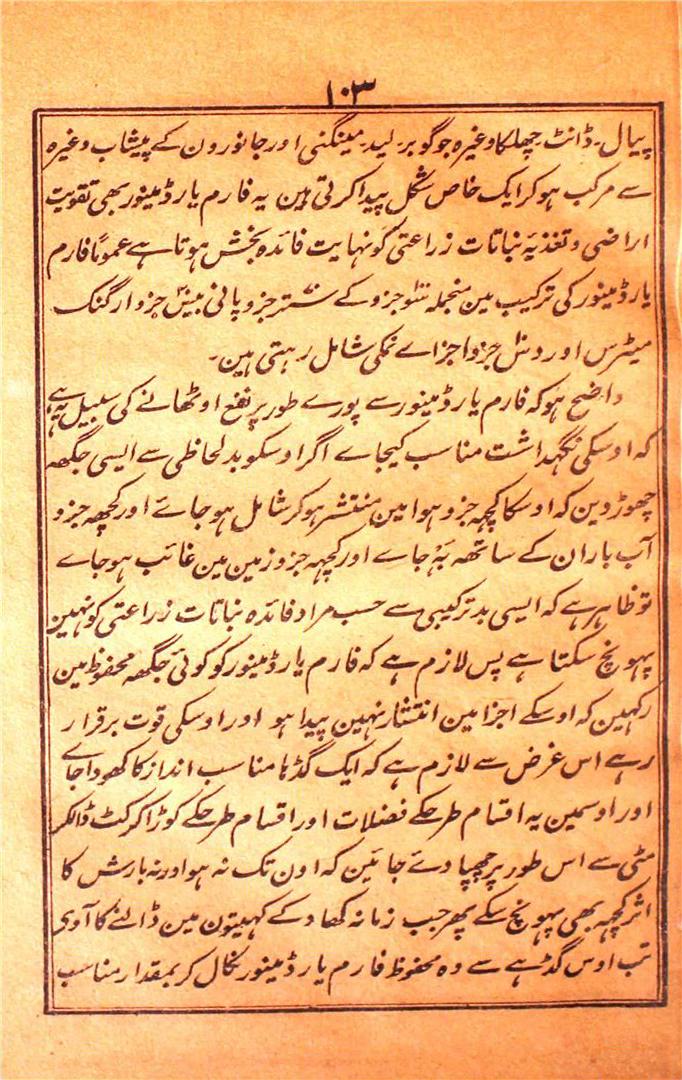 ۱۰۳
پیال۔ ڈانٹ۔ چھلکا وغیرہ جو گوبر۔ لید۔ مینگنی اور جانورون کے پیشاب وغیرہ
سے مرکب ہوکر ایک خاص شکل پیدا کرتی ہین یہ فارم یارڈ مینور بھی تقویت
اراضی و تغذیۂ نباتات زراعتی کو نہایت فائدہ بخش ہوتا ہے عموماً فارم
یارڈ مینور کی ترکیب مین منجملہ سٹو جزو کے ستتر جزو پانی بیس جزو ارگنک
میٹرس اور دس جزو اجزاے نمکی شامل رہتی ہین۔
واضح ہو کہ فارم یارڈ مینور سے پورے طور پر نفع اوٹھانے کی سبیل یہ ہے
کہ اوسکی نگہداشت مناسب کیجاے اگر اوسکو بدلحاظی سے ایسی جگھہ
چھوڑ دین کہ اوسکا کچہہ جزو ہوا مین منتشر ہوکر شامل ہوجاے اور کچھہ جزو
آب باران کے ساتھہ بہ جاے اور کچہہ جزو زمین مین غائب ہوجاے
تو ظاہر ہے کہ ایسی بدترکیبی سے حسب مراد فائدہ نباتات زراعتی کو نہین
پہونچ سکتا ہے پس لازم ہے کہ فارم یارڈ مینور کو کوئی جگھہ محفوظ مین
رکھین کہ اوسکے اجزا مین انتشار نہین پیدا ہو اور اوسکی قوت برقرار
رہے اس غرض سے لازم ہے کہ ایک گڈہا مناسب انداز کا کھودا جاے
اور اوسمین یہ اقسام طرحکے فضلات اور اقسام طرحکے کوڑا کرکٹ ڈالکر
مٹی سے اس طور پر چھپا دئے جائین کہ اون تک نہ ہوا ور نہ بارش کا
اثر کچہہ بھی پہونچ سکے پھر جب زمانہ کھاد کے کھیتون مین ڈالنے کا آوے
تب اوس گڈہے سے وہ محفوظ فارم یارڈ مینور نکال کر بمقدار مناسب